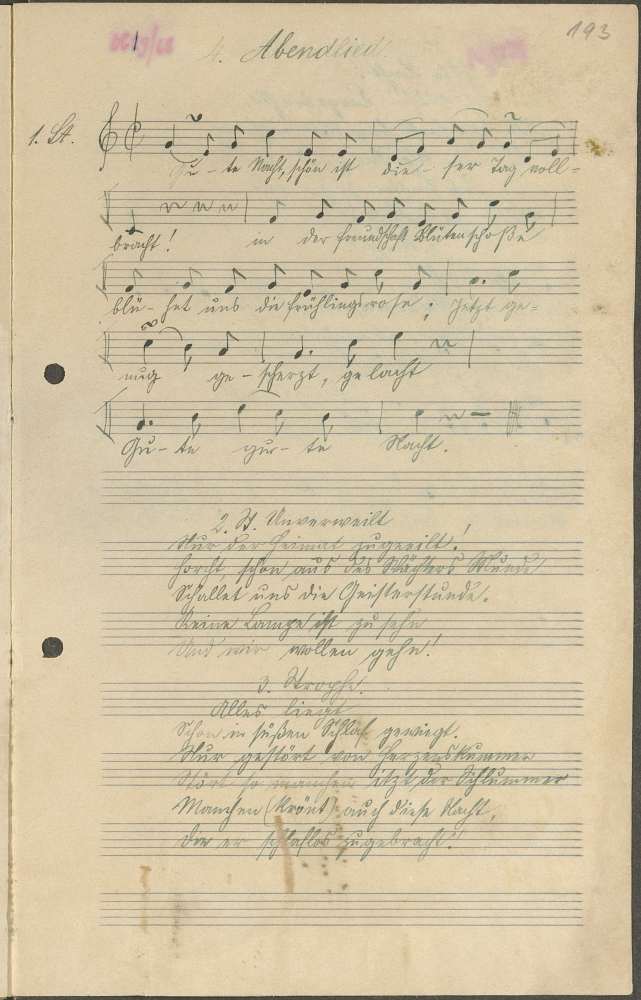 193
4. Abendlied.
1. St.
Gu - te Nacht, schön ist die - ser Tag voll =
bracht! in der Freundschaft Blütenschoße
blü - het uns die Frühlingsrose; Jetzt ge =
nug ge - scherzt, gelacht
Gu - te gu - te Nacht.
2. St. Unverweilt
Nur der Heimat zugeeilt!
Horcht, schon aus des Wächters Munde
Schallet uns die Geisterstunde.
Keine Lampe ist zu sehn
Und wir wollen gehn!
3. Strophe.
Alles liegt
Schon in süßen Schlaf gewiegt.
Nur gestört von Herzenskummer
Stört so manchen itzt der Schlummer
Manchen (krönt) auch diese Nacht,
die er schlaflos zugebracht.